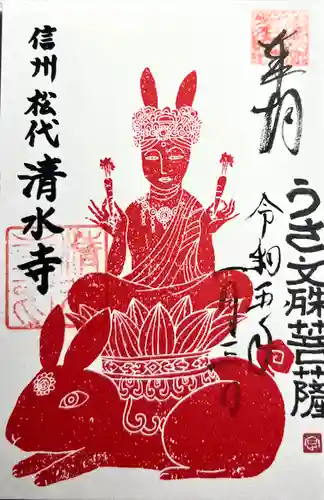 奉拝
うさ文殊菩薩
令和五年
一月三日
信州 松代 清水寺